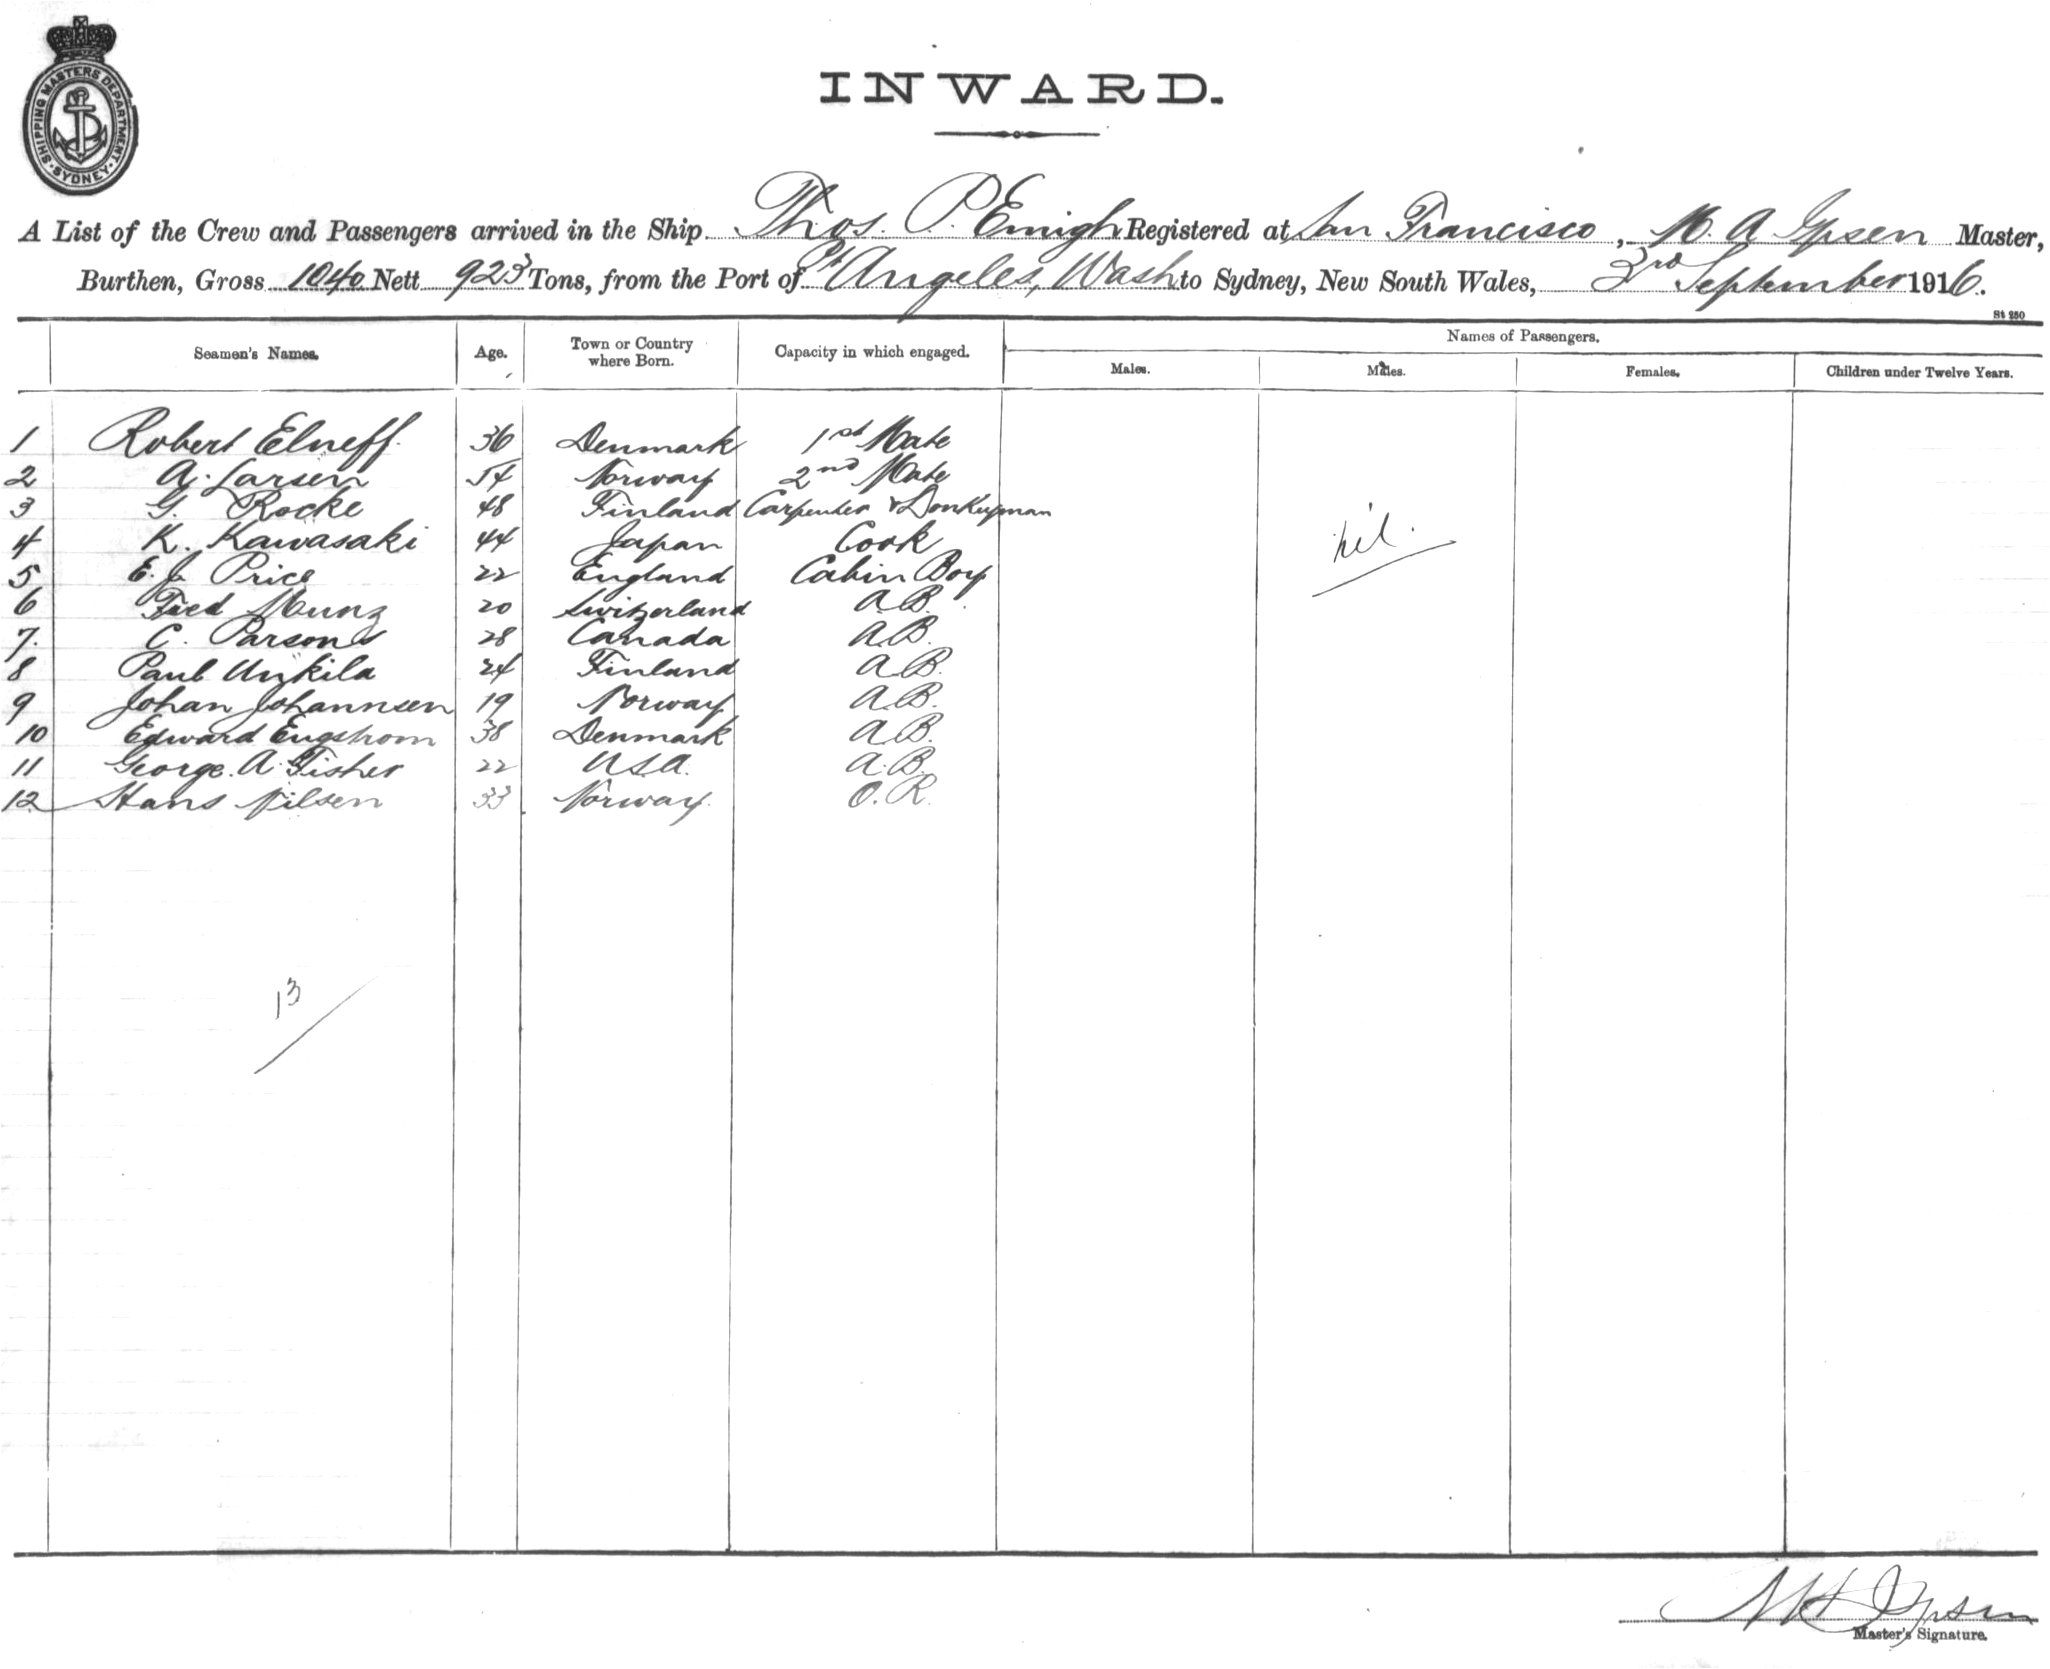 SHIPPING MASTERS DEPARTMENT
SYDNEY
INWARD.
A List of the Crew and Passengers arrived in the Ship Thos. P. Emigh Registered at San Francisco, M. A Ipsen Master,
Burthen, Gross 1040 Nett 923 Tons, from the Port of Pt Angeles, Wash to Sydney, New South Wales, 3rd September 1916.
St 250
Seamen's Names. Age. Town or Country where Born. Capacity in which engaged. Names of Passengers.
Males. Males. Females. Children under Twelve Years.
1 Robert Elneff 36 Denmark 1st Mate
2 A. Larsen 54 Norway 2nd Mate
3 G. Rocke 48 Finland Carpenter & Donkeyman
nil.
4 K. Kawasaki 44 Japan Cook
5 E. J. Price 22 England Cabin Boy
6 Fred Munz 20 Switzerland A.B.
7. C. Parsons 28 Canada A.B.
8 Paul 24 Finland A.B.
9 Johan Johannsen 19 Norway A.B.
10 Edward Engstrom 38 Denmark A.B.
11 George. A. Fisher 22 USA. A.B.
12 Hans Nilsen 33 Norway. O.R.
13
Ipsen
Master's Signature.